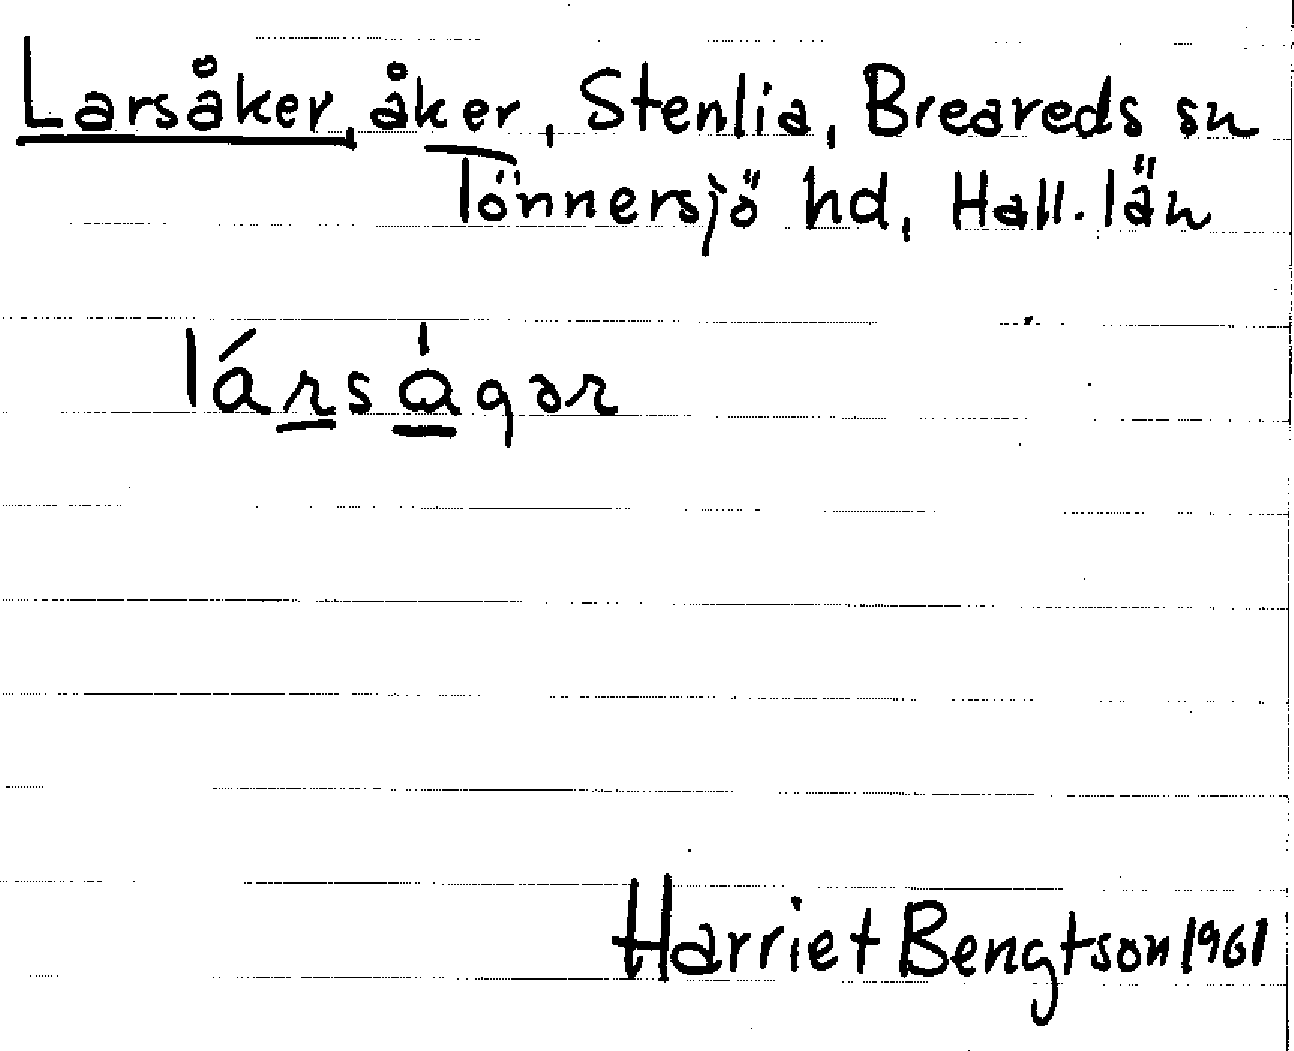 Larsåker, åker, Stenlia, Breareds sn
Tönnersjö hd, Hall. län
lársȧgər
Harriet Bengtson 1961